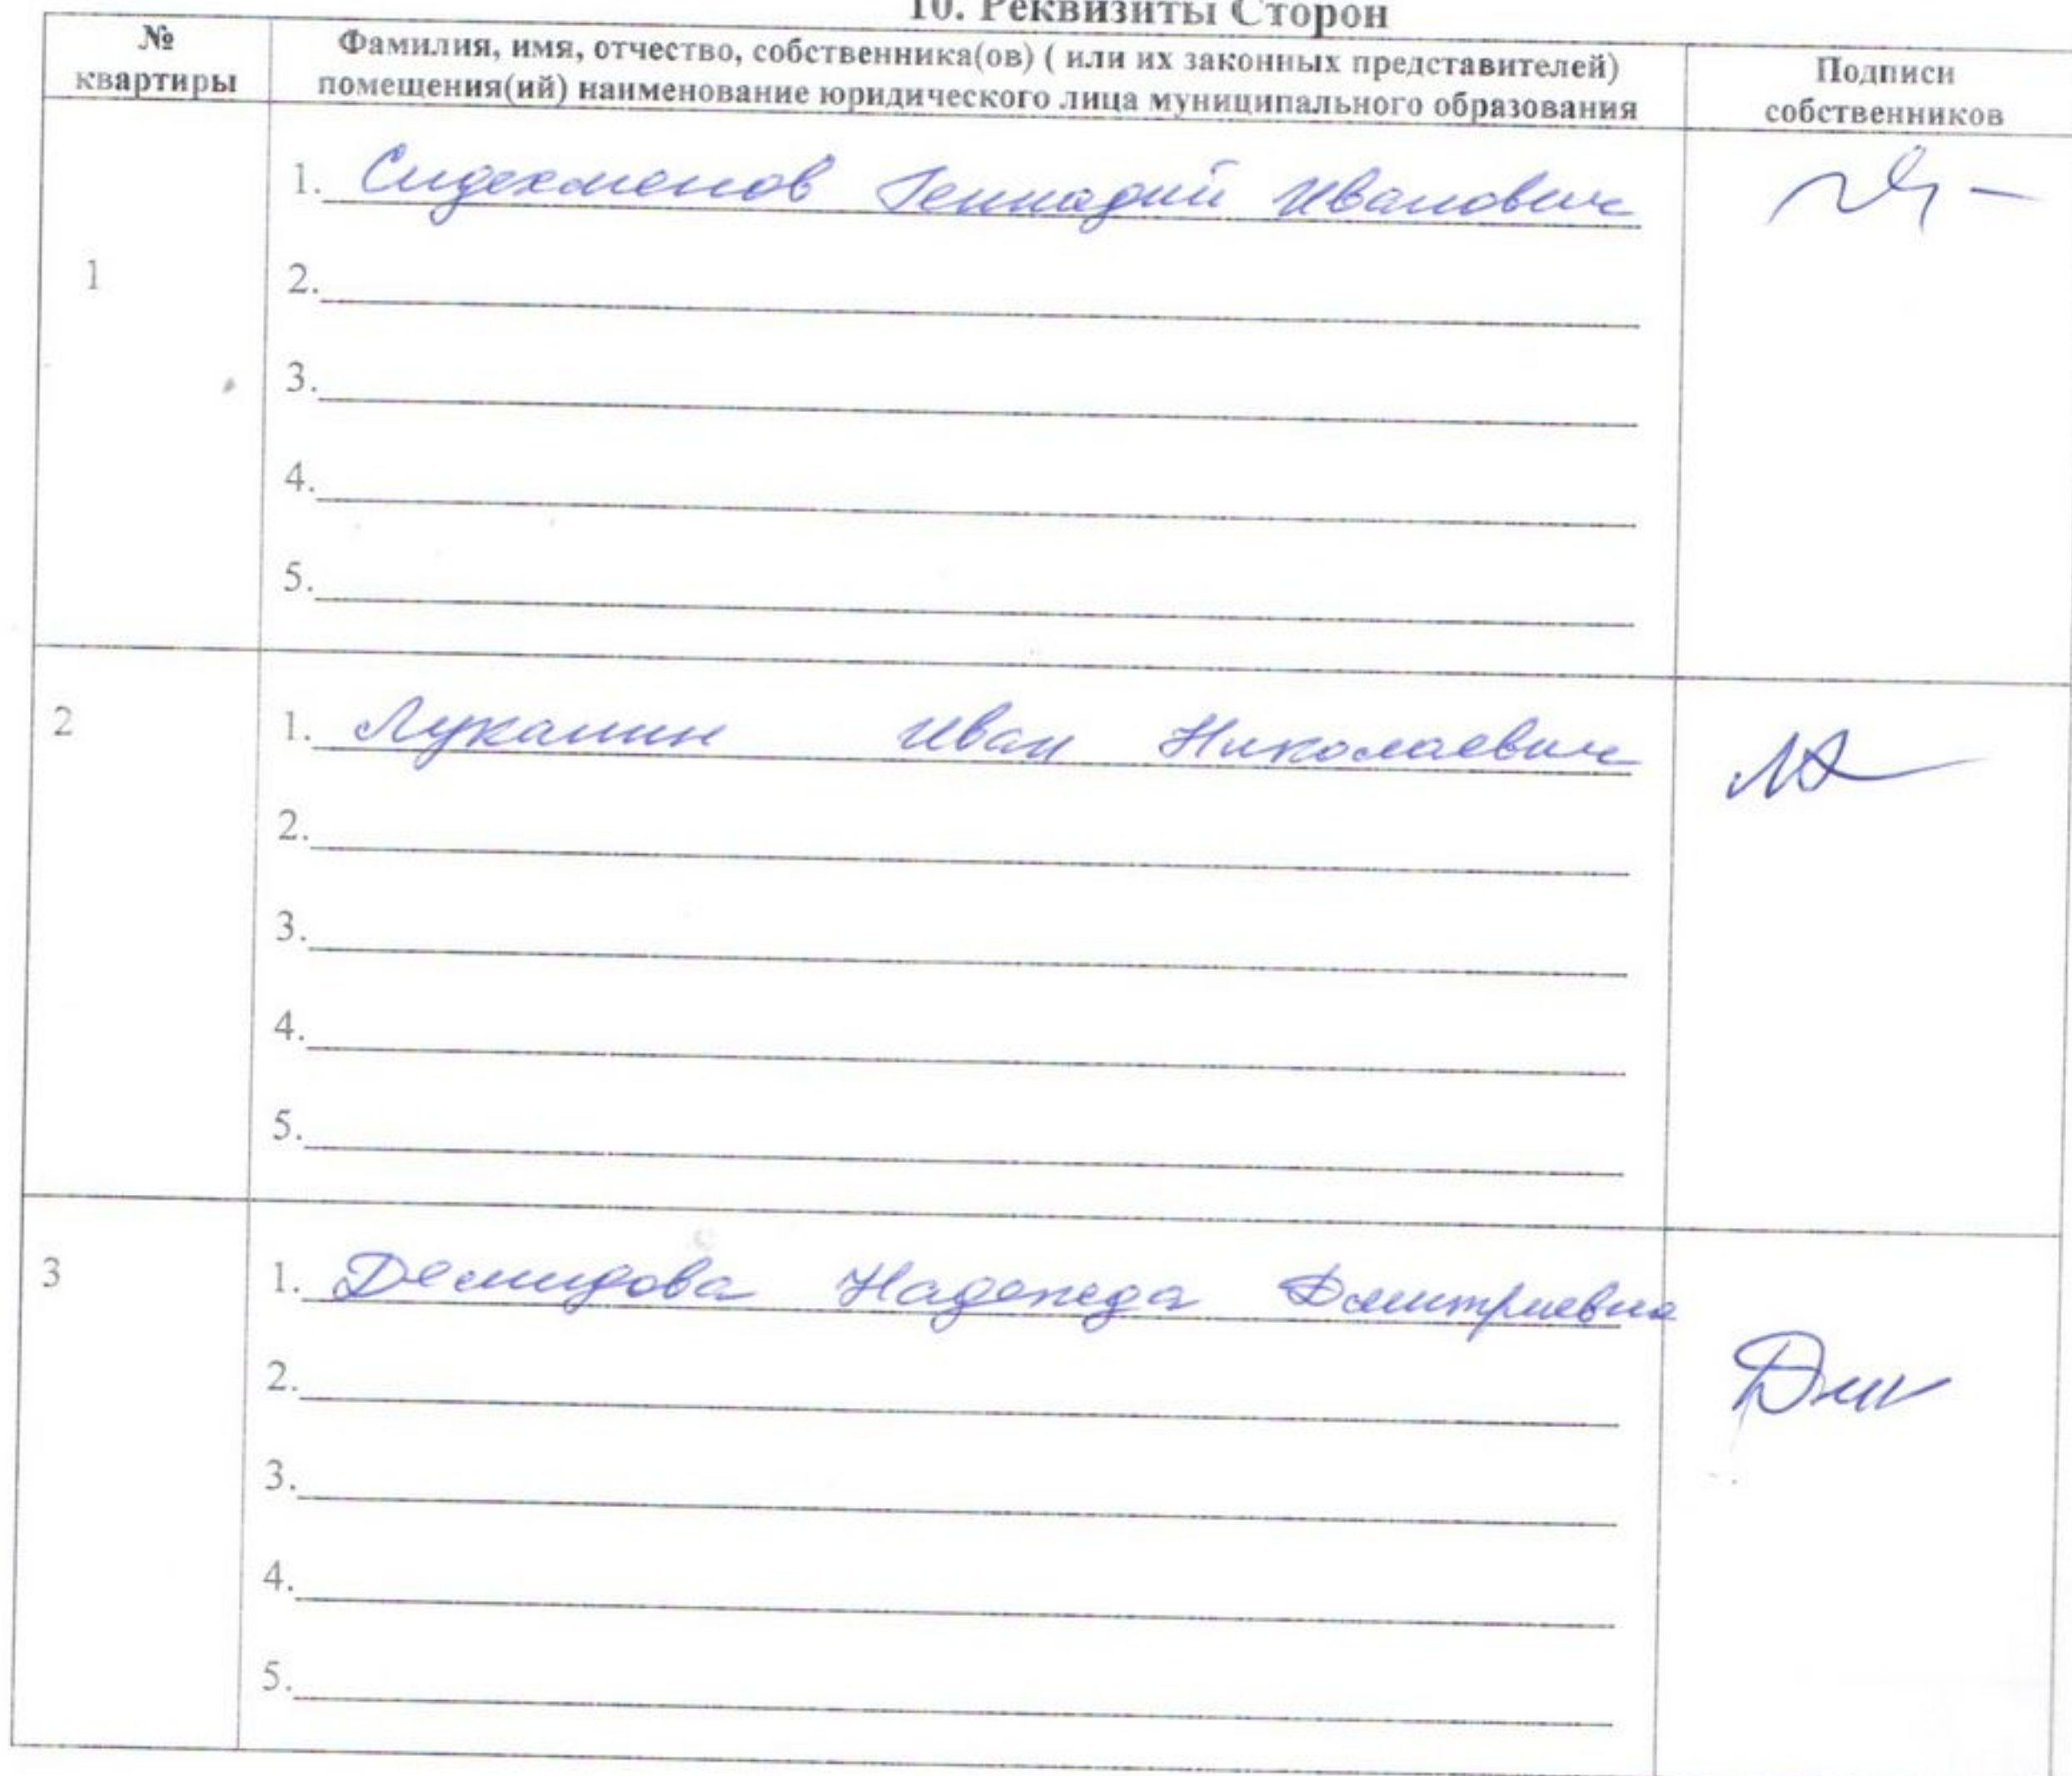 10. Реквизиты Сторон
№ квартиры
Фамилия, имя, отчество, собственника(ов) ( или их законных представителей)
помещения(ий) наименование юридического лица муниципального образования
Подписи
собственников
1
1. Сидехменов Геннадий Иванович
2.
3.
4.
5.
2
1. Луканин Иван Николаевич
2.
3.
4.
5.
3
1. Демидова Надежда Дмитриевна
2.
3.
4.
5.